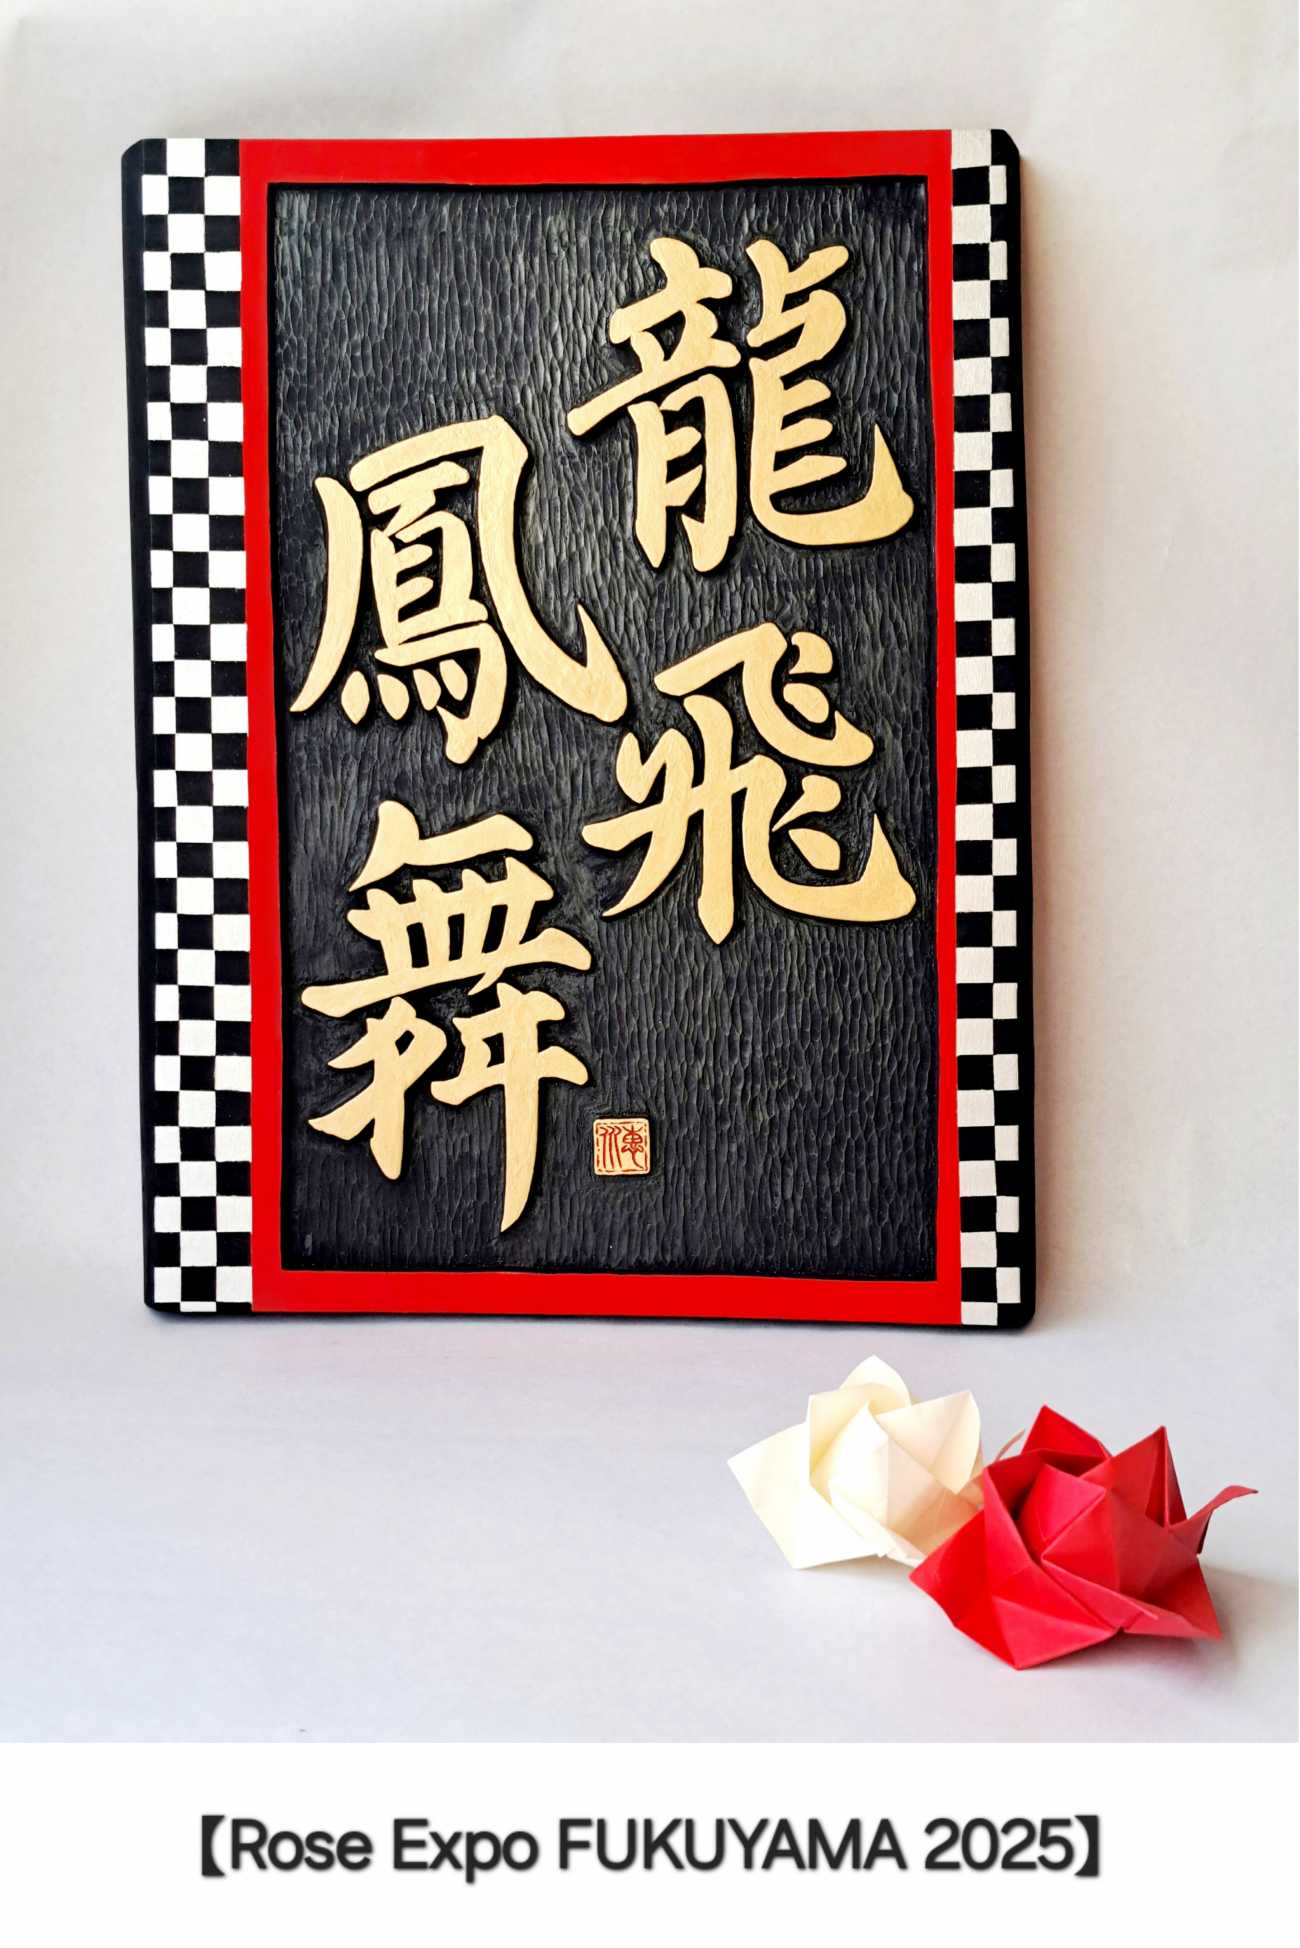 龍飛
鳳舞
【Rose Expo FUKUYAMA 2025】